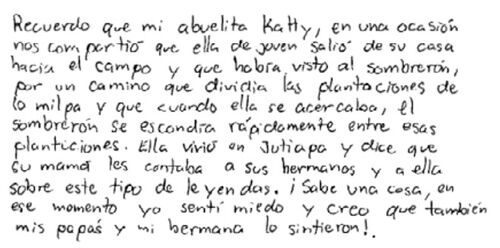 Recuerdo que mi abuelita Katty, en una ocasión
nos compartió que ella de joven salió de su casa
hacia el campo y que habra visto al sombrerón,
por un camino que dividia las plantaciones de
lo milpa y que cuando ella se acercaba, el
sombrerón se escondia rápidamente entre esas
planticiones. Ella vivió en Jutiapa y dice que
su mamá les contaba a sus hermanos y a ella
sobre este tipo de leyendas. ¡Sabe una cosa, en
ese momento yo sentí miedo y creo que también
mis papás y mi hermana lo sintieron!.